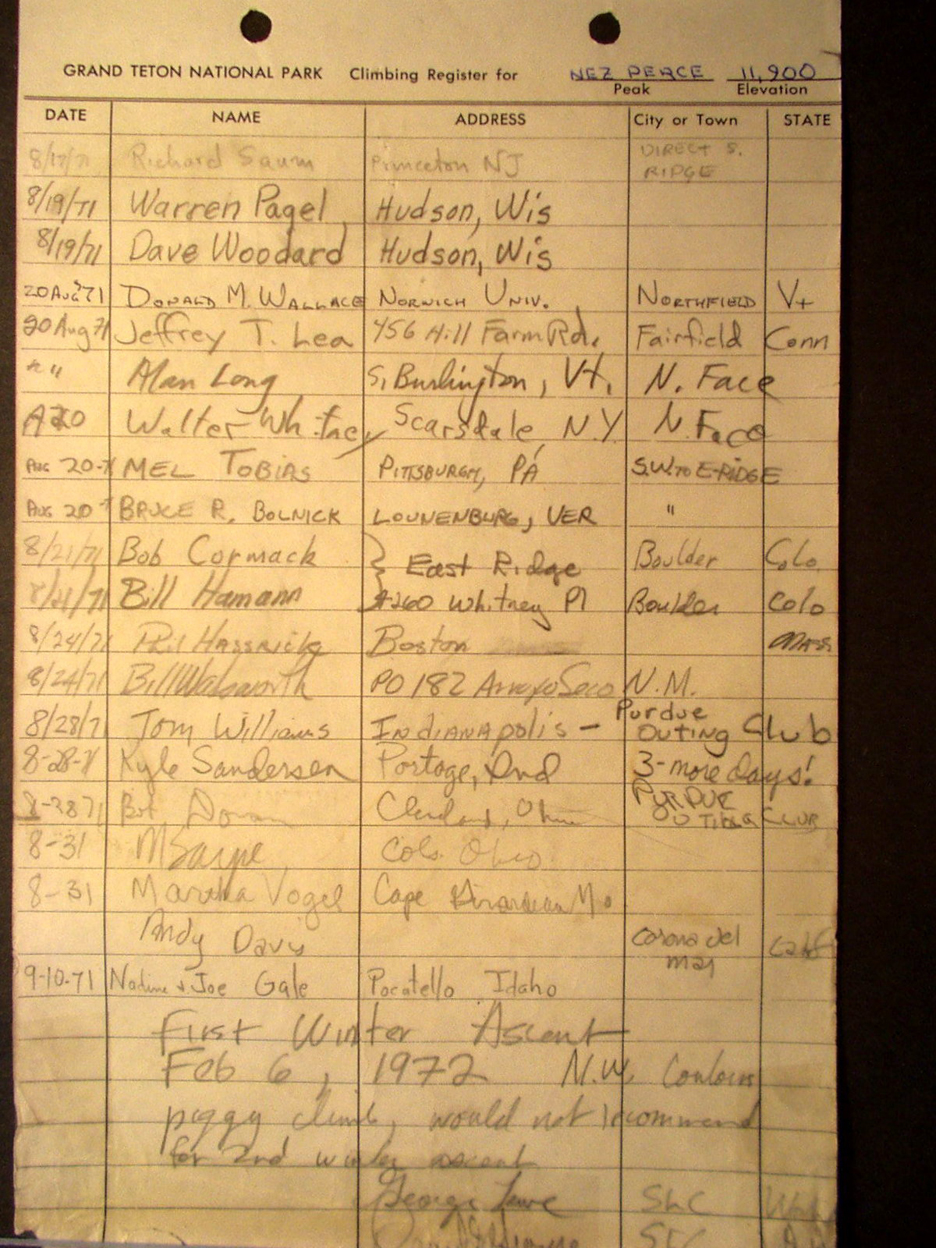 GRAND TETON NATIONAL PARK Climbing Register for NEZ PERCE 11,900
Peak Elevation
DATE NAME ADDRESS City or Town STATE
8/17/71 Richard Saum Princeton NJ DIRECT S. RIDGE
8/19/71 Warren Pagel Hudson, Wis
8/19/71 Dave Woodard Hudson, Wis
20 Aug 71 DONALD M. WALLACE NORWICH UNIV. NORTHFIELD Vt
20 Aug 71 Jeffrey T. Lea 456 Hill Farm Rd. Fairfield Conn
" " Alan Long S. Burlington, Vt. N. Face
A20 Walter Whitney Scarsdale, N.Y N. Face
AUG 20-71 MEL TOBIAS PITTSBURGH, PA S.W. TO E-RIDGE
AUG 20 BRUCE R. BOLNICK LOUNENBURG, VER "
8/21/71 Bob Cormack } East Ridge Boulder Colo
8/21/71 Bill Hamann 4260 Whitney Pl Boulder Colo
8/24/71 Phil Hassrick Boston MASS
8/24/71 Bill PO 182 Arroyo Seco N.M.
8/28/71 Tom Williams INdiANApolis - Purdue OUTING Club
8-28-71 Kyle Sandersen Portage, Ind 3-more days!
8-28 71 Bob Doran Cleveland, Ohio PURDUE OUTING CLUB
8-31 Cols. Ohio
8-31 Martha Vogel Cape Girardeau Mo
Andy Davis Corona del mar Calif
9-10-71 Nadine & Joe Gale Pocatello Idaho
First Winter Ascent
Feb 6, 1972 N.W. Couloirs
piggy climb, would not recommend
for 2nd winter ascent
George Lowe SLC Utah
SLC